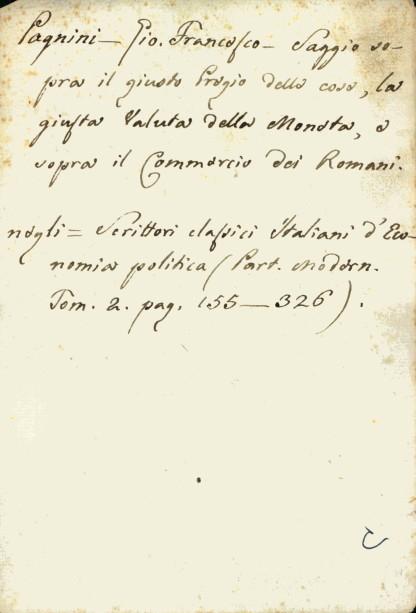 Pagnini — Gio. Francesco — Saggio so-
pra il giusto Pregio delle cose, la
giusta Valuta della Moneta, e
sopra il Commercio dei Romani.
negli = Scrittori classici Italiani d'Eco-
nomia politica (Part. Modern.
Tom. 2. pag. 155 — 326).